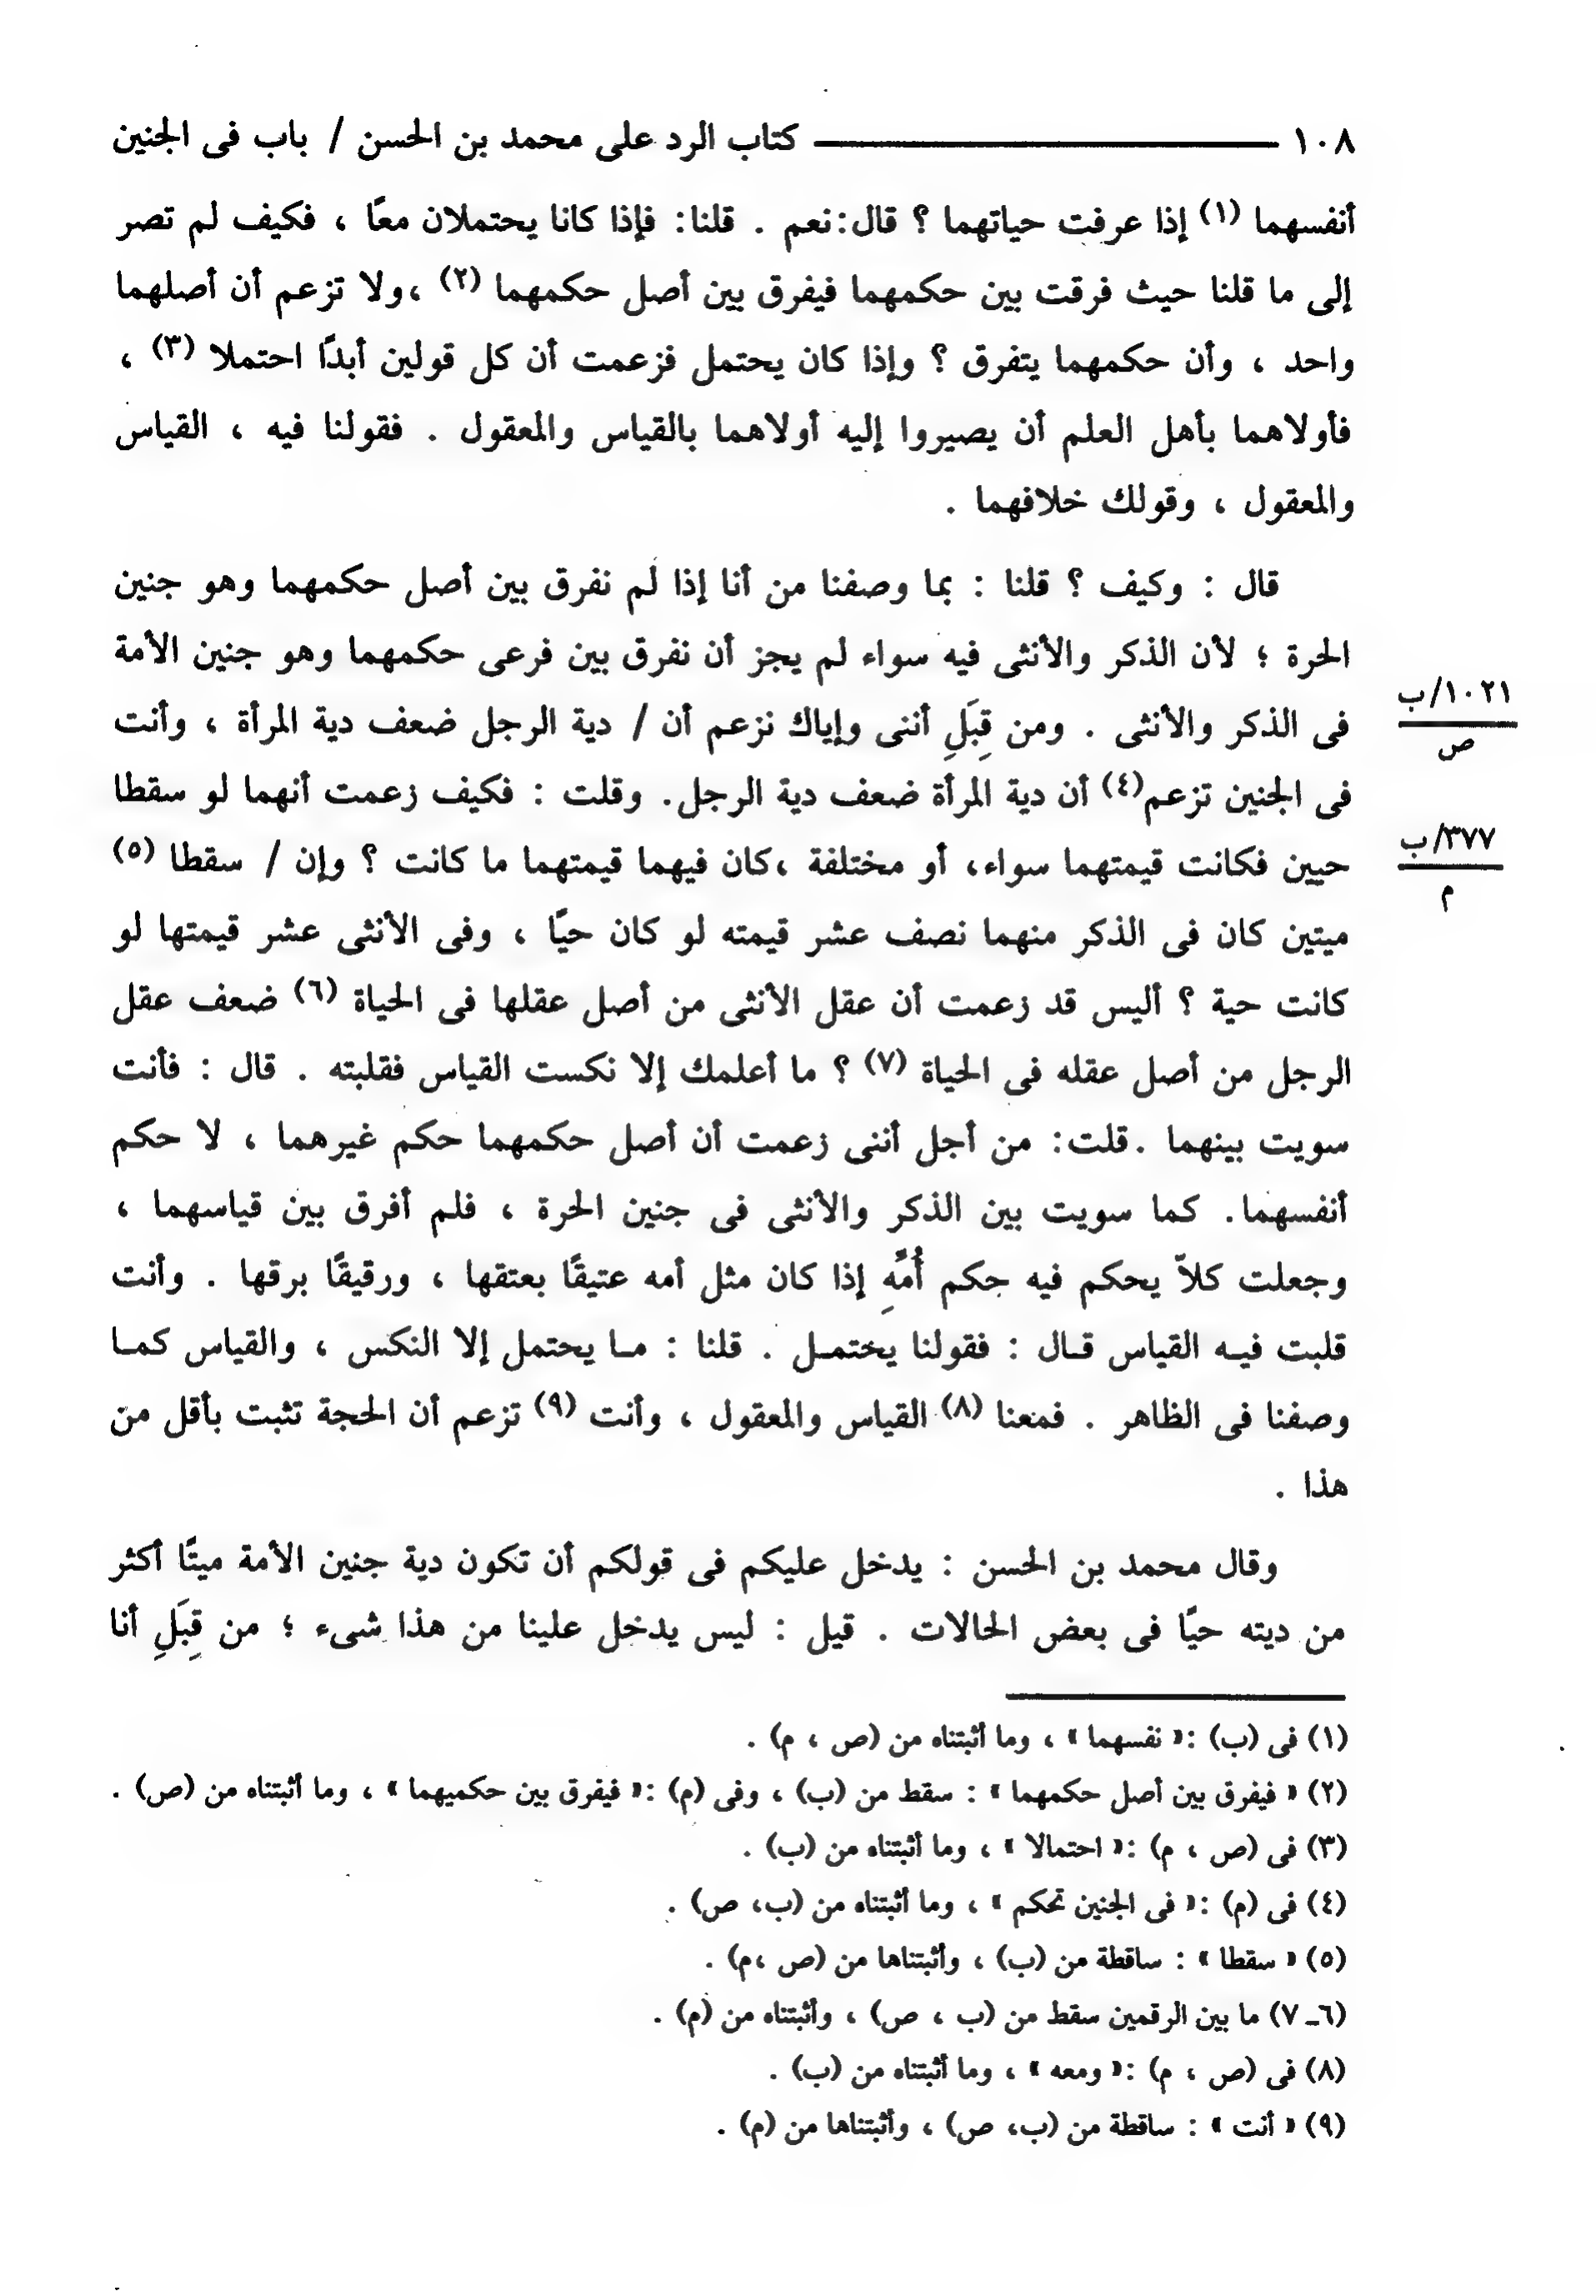 ١٠٨ ــــــــــــــــ كتاب الرد على محمد بن الحسن / باب فى الجنين
أنفسهما (١) إذا عرفت حياتهما ؟ قال:نعم . قلنا: فإذا كانا يحتملان معًا ، فكيف لم تصر
إلى ما قلنا حيث فرقت بين حكمهما فيفرق بين أصل حكمهما (٢) ،ولا تزعم أن أصلهما
واحد ، وأن حكمهما يتفرق ؟ وإذا كان يحتمل فزعمت أن كل قولين أبدًا احتملا (٣) ،
فأولاهما بأهل العلم أن يصيروا إليه أولاهما بالقياس والمعقول . فقولنا فيه ، القياس
والمعقول ، وقولك خلافهما .
قال : وكيف ؟ قلنا : بما وصفنا من أنا إذا لم نفرق بين أصل حكمهما وهو جنين
الحرة ؛ لأن الذكر والأنثى فيه سواء لم يجز أن نفرق بين فرعى حكمهما وهو جنين الأمة
١٠٢١/ب
ص
فى الذكر والأنثى . ومن قِبَلِ أننى وإياك نزعم أن / دية الرجل ضعف دية المرأة ، وأنت
فى الجنين تزعم(٤) أن دية المرأة ضعف دية الرجل. وقلت : فكيف زعمت أنهما لو سقطا
٣٧٧/ب
م
حيين فكانت قيمتهما سواء، أو مختلفة ،كان فيهما قيمتهما ما كانت ؟ وإن / سقطا (٥)
ميتين كان فى الذكر منهما نصف عشر قيمته لو كان حيًا ، وفى الأنثى عشر قيمتها لو
كانت حية ؟ أليس قد زعمت أن عقل الأنثى من أصل عقلها فى الحياة (٦) ضعف عقل
الرجل من أصل عقله فى الحياة (٧) ؟ ما أعلمك إلا نكست القياس فقلبته . قال : فأنت
سويت بينهما .قلت: من أجل أننى زعمت أن أصل حكمهما حكم غيرهما ، لا حكم
أنفسهما. كما سويت بين الذكر والأنثى فى جنين الحرة ، فلم أفرق بين قياسهما ،
وجعلت كلاّ يحكم فيه حكم أُمِّهِ إذا كان مثل أمه عتيقًا بعتقها ، ورقيقًا برقها . وأنت
قلبت فيـه القياس قـال : فقولنا يحتمـل . قلنا : مـا يحتمل إلا النكس ، والقياس كمـا
وصفنا فى الظاهر . فمعنا (٨) القياس والمعقول ، وأنت (٩) تزعم أن الحجة تثبت بأقل من
هذا .
وقال محمد بن الحسن : يدخل عليكم فى قولكم أن تكون دية جنين الأمة ميتًا أكثر
من ديته حيًا فى بعض الحالات . قيل : ليس يدخل علينا من هذا شىء ؛ من قِبَلِ أنا
(١) فى (ب) :« نفسهما » ، وما أثبتناه من (ص ، م) .
(٢) « فيفرق بين أصل حكمهما » : سقط من (ب) ، وفى (م) :« فيفرق بين حكميهما » ، وما أثبتناه من (ص) .
(٣) فى (ص ، م) :« احتمالا » ، وما أثبتناه من (ب) .
(٤) فى (م) :« فى الجنين تحكم » ، وما أثبتناه من (ب، ص) .
(٥) « سقطا » : ساقطة من (ب) ، وأثبتناها من (ص ،م) .
(٦ـ ٧) ما بين الرقمين سقط من (ب ، ص) ، وأثبتناه من (م) .
(٨) فى (ص ، م) :« ومعه » ، وما أثبتناه من (ب) .
(٩) « أنت » : ساقطة من (ب، ص) ، وأثبتناها من (م) .